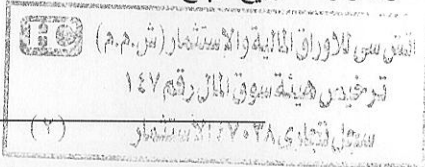 اتش سى للأوراق المالية والإستثمار (ش.م.م)
ترخيص هيئة سوق المال رقم ١٤٧
سجل تجارى ١٤٧٠٣٨ الاستثمار
(٢)